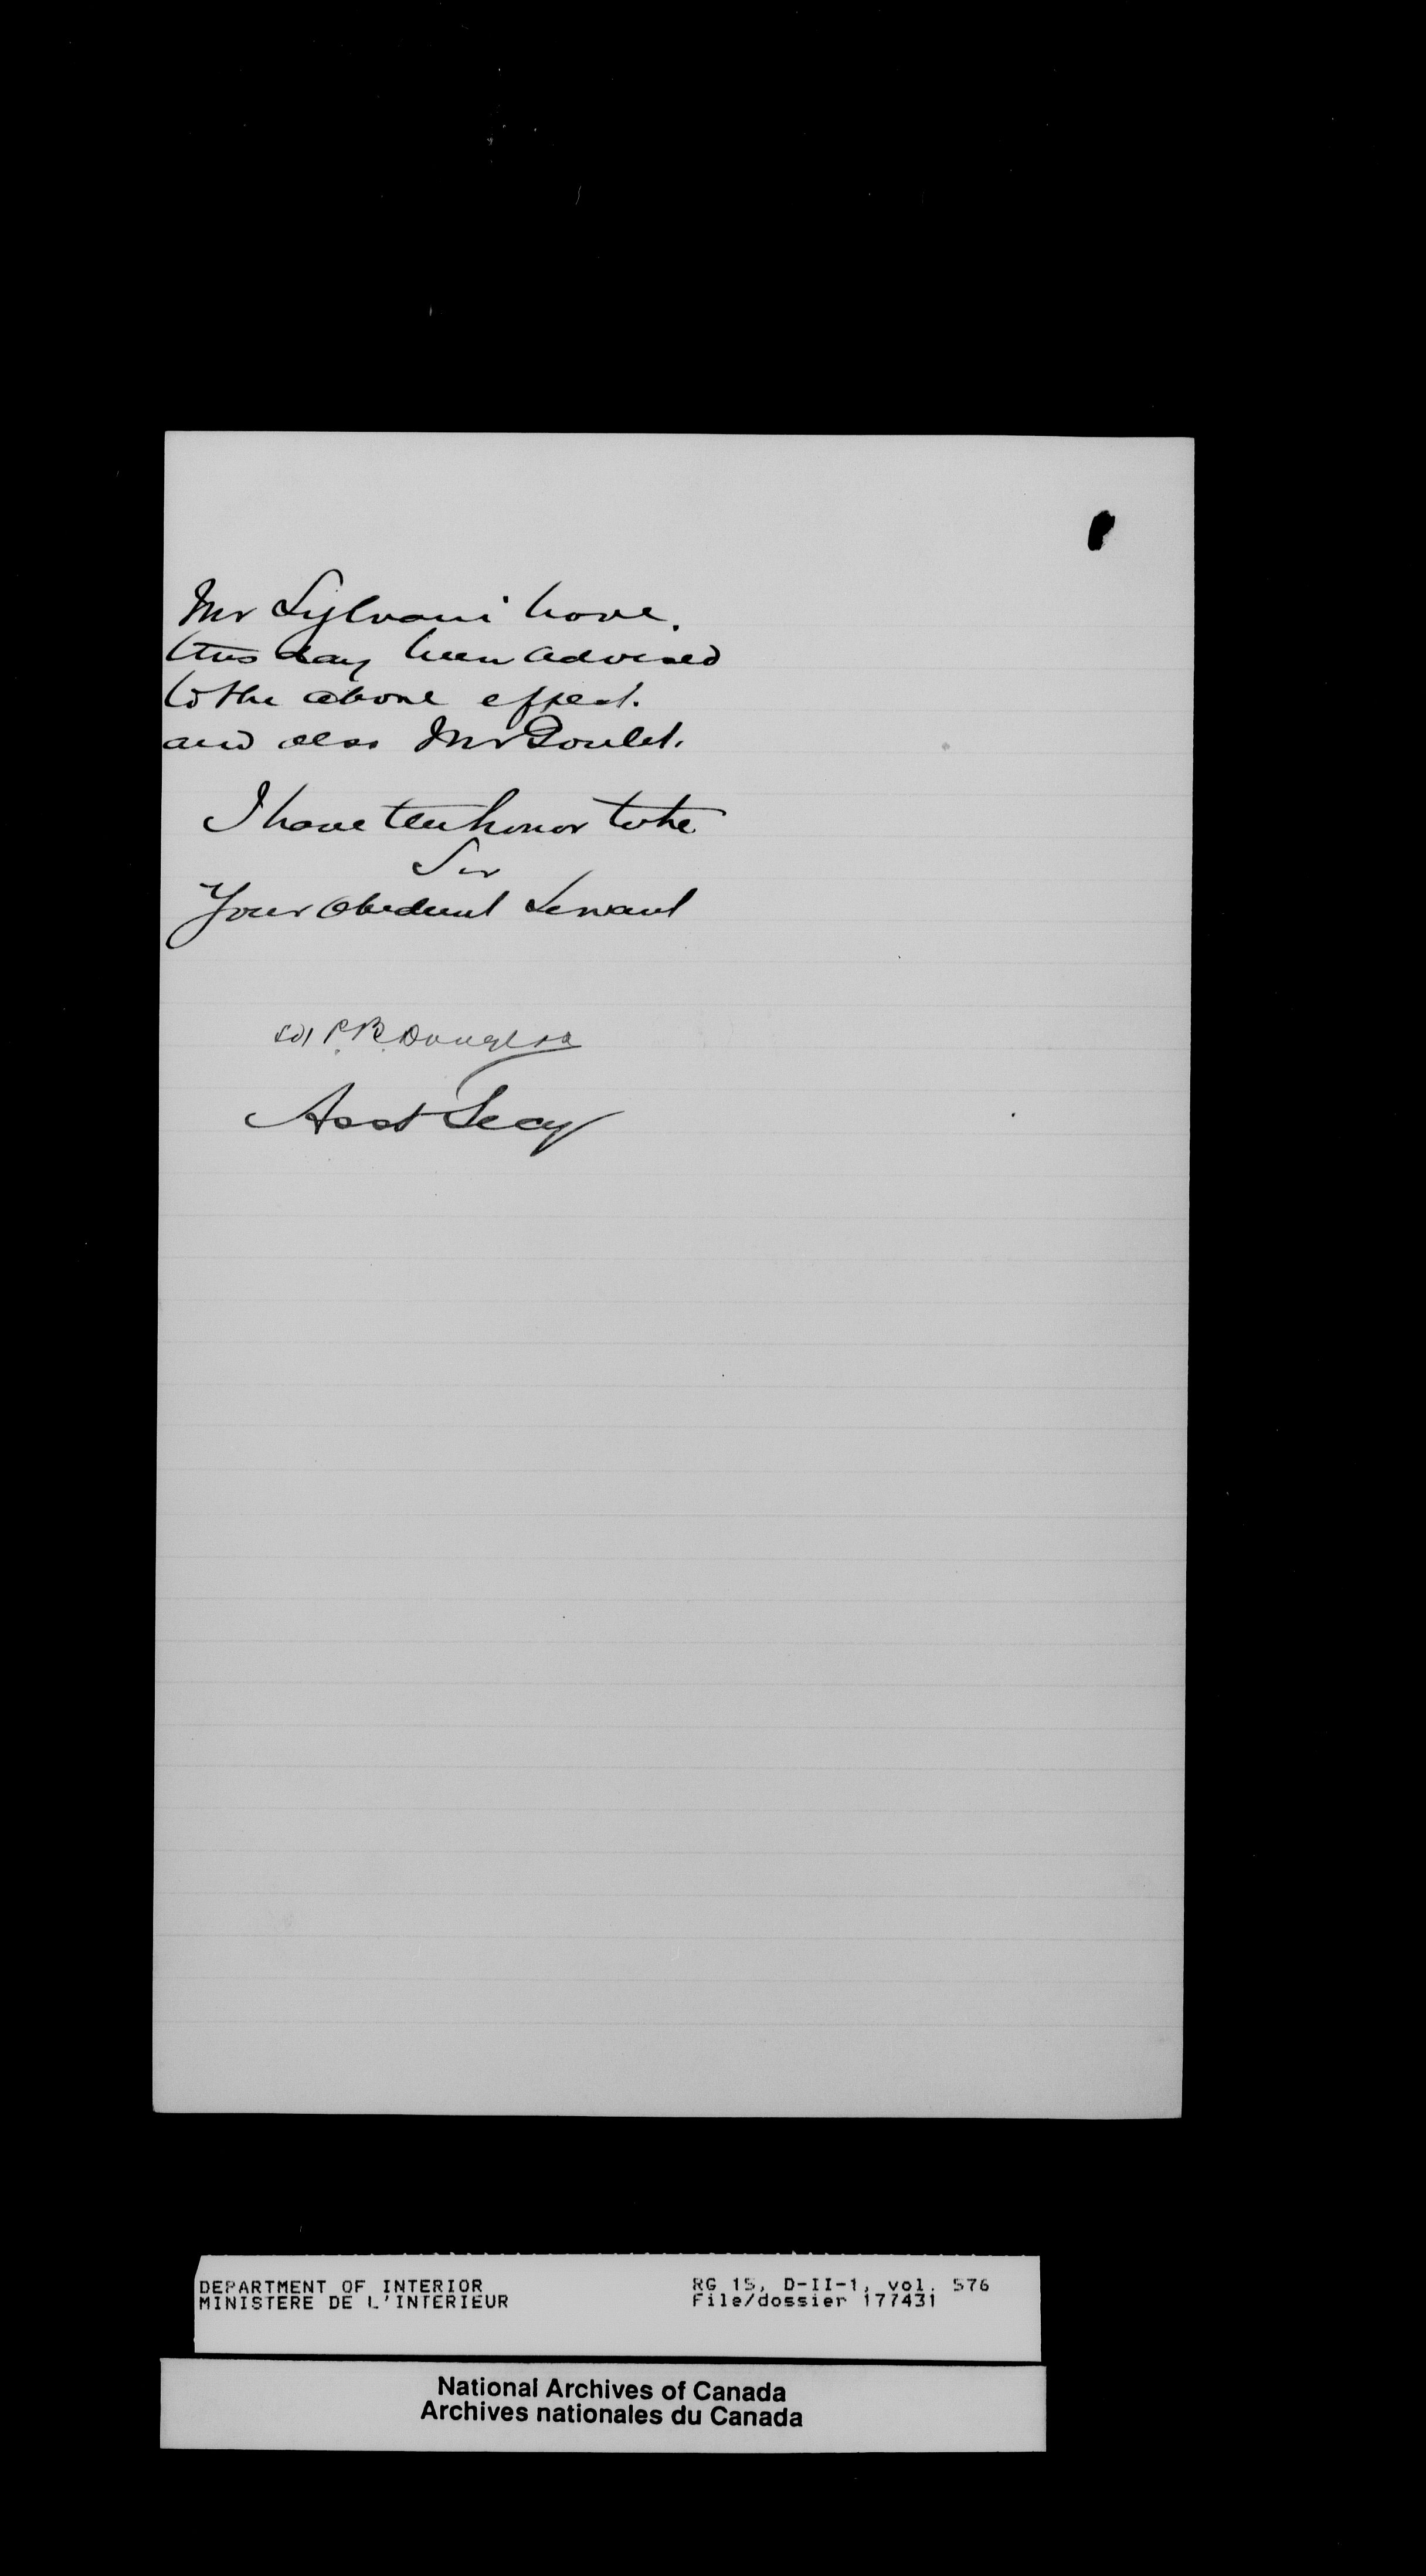 Mr Sylvani have.
this day been advised
to the above effect.
and also Mr Goulet.
I have the honor to be
Sir
Your obedient Servant
sd P. B. Douglas
Asst Secy
DEPARTMENT OF INTERIOR RG 15, D-II-1, vol. 576
MINISTERE DE L'INTERIEUR File/dossier 177431
National Archives of Canada
Archives nationales du Canada